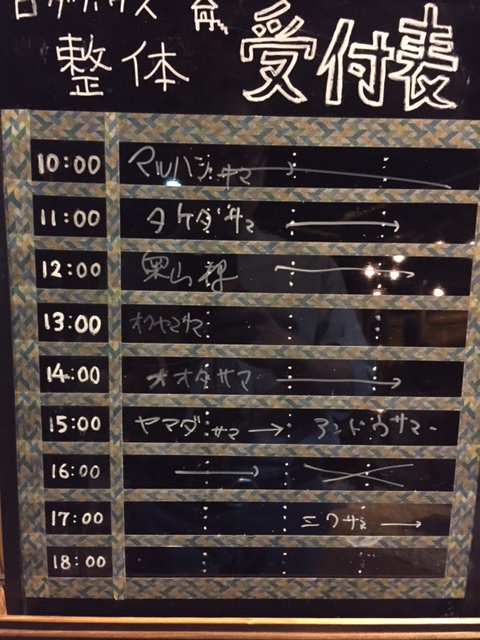 ログハウス
整体 受付表
10:00 マルハシ サマ
11:00 タケダ サマ
12:00 奥山様
13:00 オクヤマサマ
14:00 オオタサマ
15:00 ヤマダ サマ → アンドウサマ
16:00
17:00 ミワサマ →
18:00